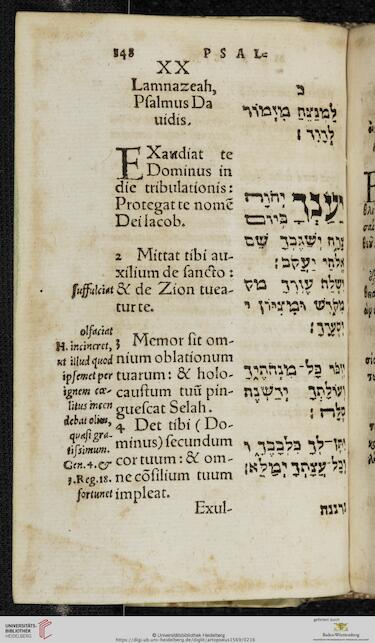 348 PSAL=
XX
Lamnazeah,
Psalmus Da
uidis.
EXaudiat te
Dominus in
die tribulationis:
Protegat te nomẽ
Dei Iacob.
2 Mittat tibi au-
xilium de sancto:
& de Zion tuea-
tur te.
3 Memor sit om-
nium oblationum
tuarum: & holo-
caustum tuũ pin-
guescat Selah.
4 Det tibi (Do-
minus) secundum
cor tuum: & om-
ne cõsilium tuum
impleat.
Exul-
suffulciat
olfaciat
H. incineret,
ut illud quod
ipsemet per
ignem cæ-
litus incen
debat olim,
quasi gra-
tissimum.
Gen. 4. &
3. Reg. 18.
fortunet
כ
לַמְנַצֵּחַ מִזְמוֹר
לְדָוִד׃
יַעַנְךָ יְהוָה
בְּיוֹם
צָרָה יְשַׂגֶּבְךָ שֵׁם
אֱלֹהֵי יַעֲקֹב׃
יִשְׁלַח עֶזְרְךָ מִקֹּ
מִקֹּדֶשׁ וּמִצִּיּוֹן י
יִסְעָדֶךָּ׃
יִזְכֹּר כָּל־מִנְחֹתֶיךָ
וְעוֹלָתְךָ יְדַשְּׁנֶה
סֶלָה׃
יִתֶּן־לְךָ כִלְבָבֶךָ ו
וְכָל־עֲצָתְךָ יְמַלֵּא׃
נרננה
UNIVERSITÄTS-
BIBLIOTHEK
HEIDELBERG
© Universitätsbibliothek Heidelberg
gefördert durch
Baden-Württemberg